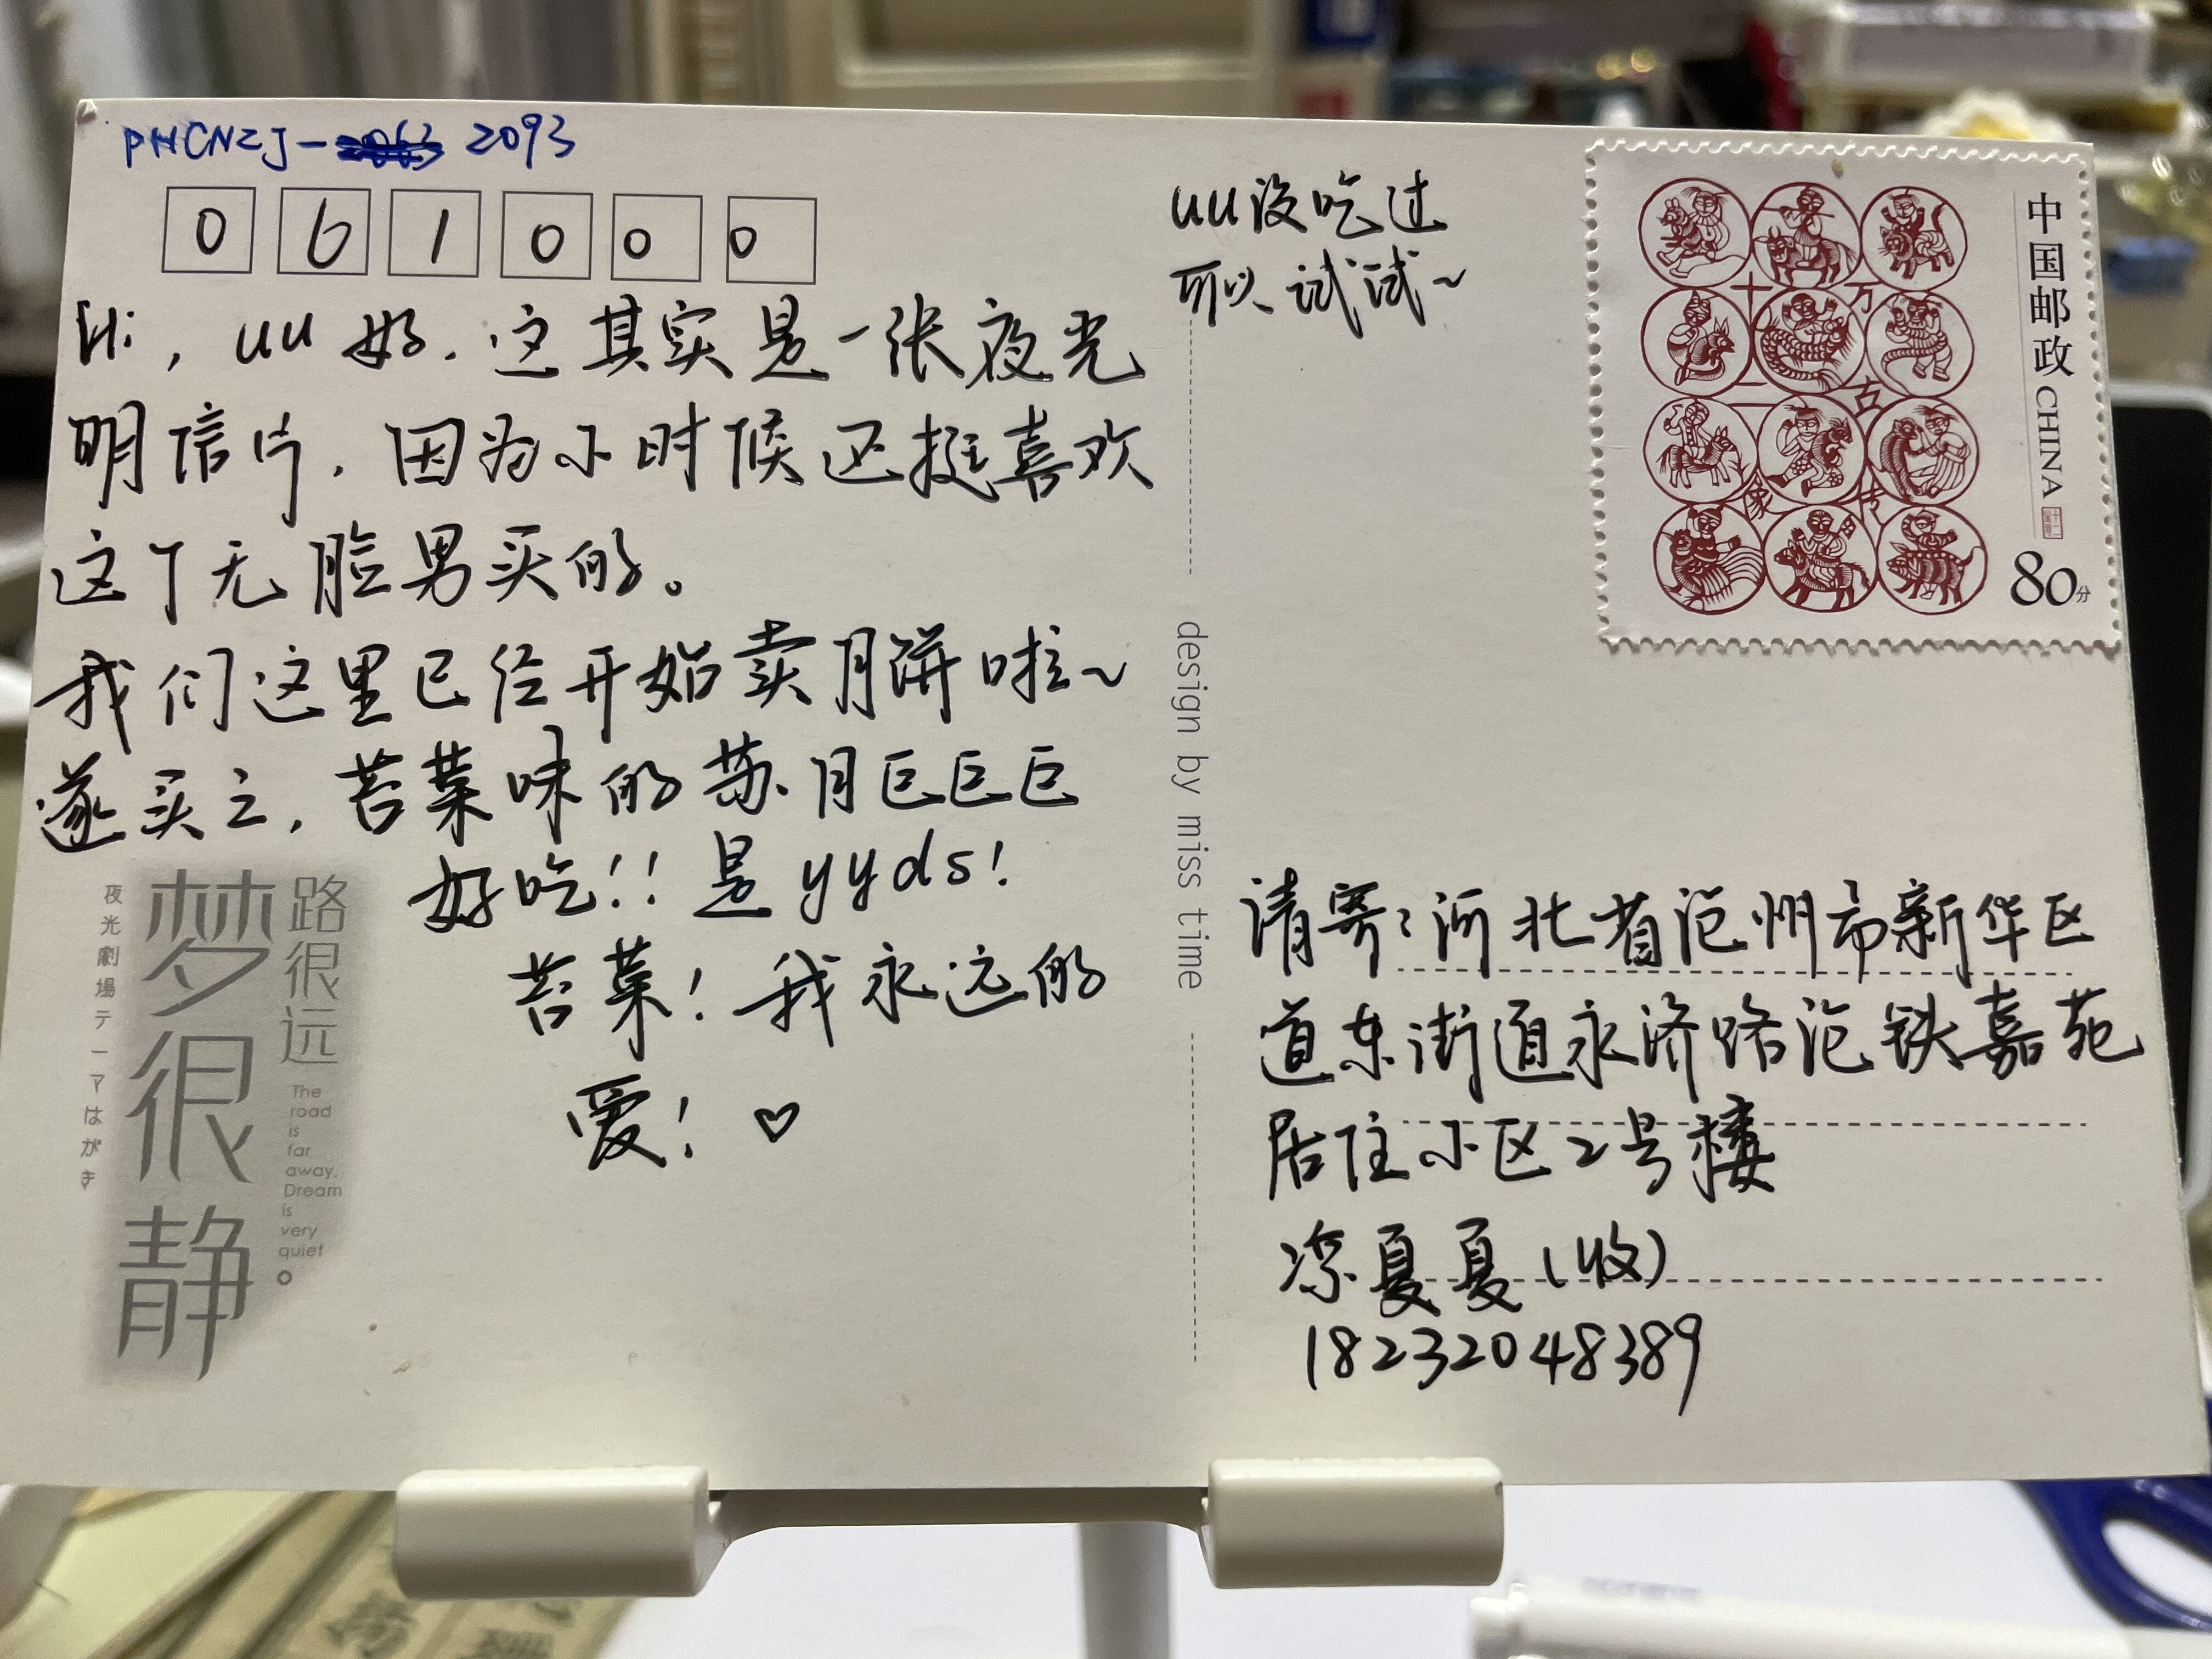 PHCNZJ-2093
061000
Hi，uu好．这其实是一张夜光
明信片．因为小时候还挺喜欢
这个无脸男买的。
我们这里已经开始卖月饼啦~
遂买之，苔菜味的苏月巨巨巨
好吃!! 是yyds!
苔菜！我永远的
爱！♡
uu没吃过
可以试试~
中国邮政 CHINA
80分
十二万古
design by miss time
路很远
梦很静
夜光劇場テーマはがき
The
road
is
far
away.
Dream
is
very
quiet
请寄：河北省沧州市新华区
道东街道永济路沧铁嘉苑
居住小区2号楼
凉夏夏（收）
18232048389